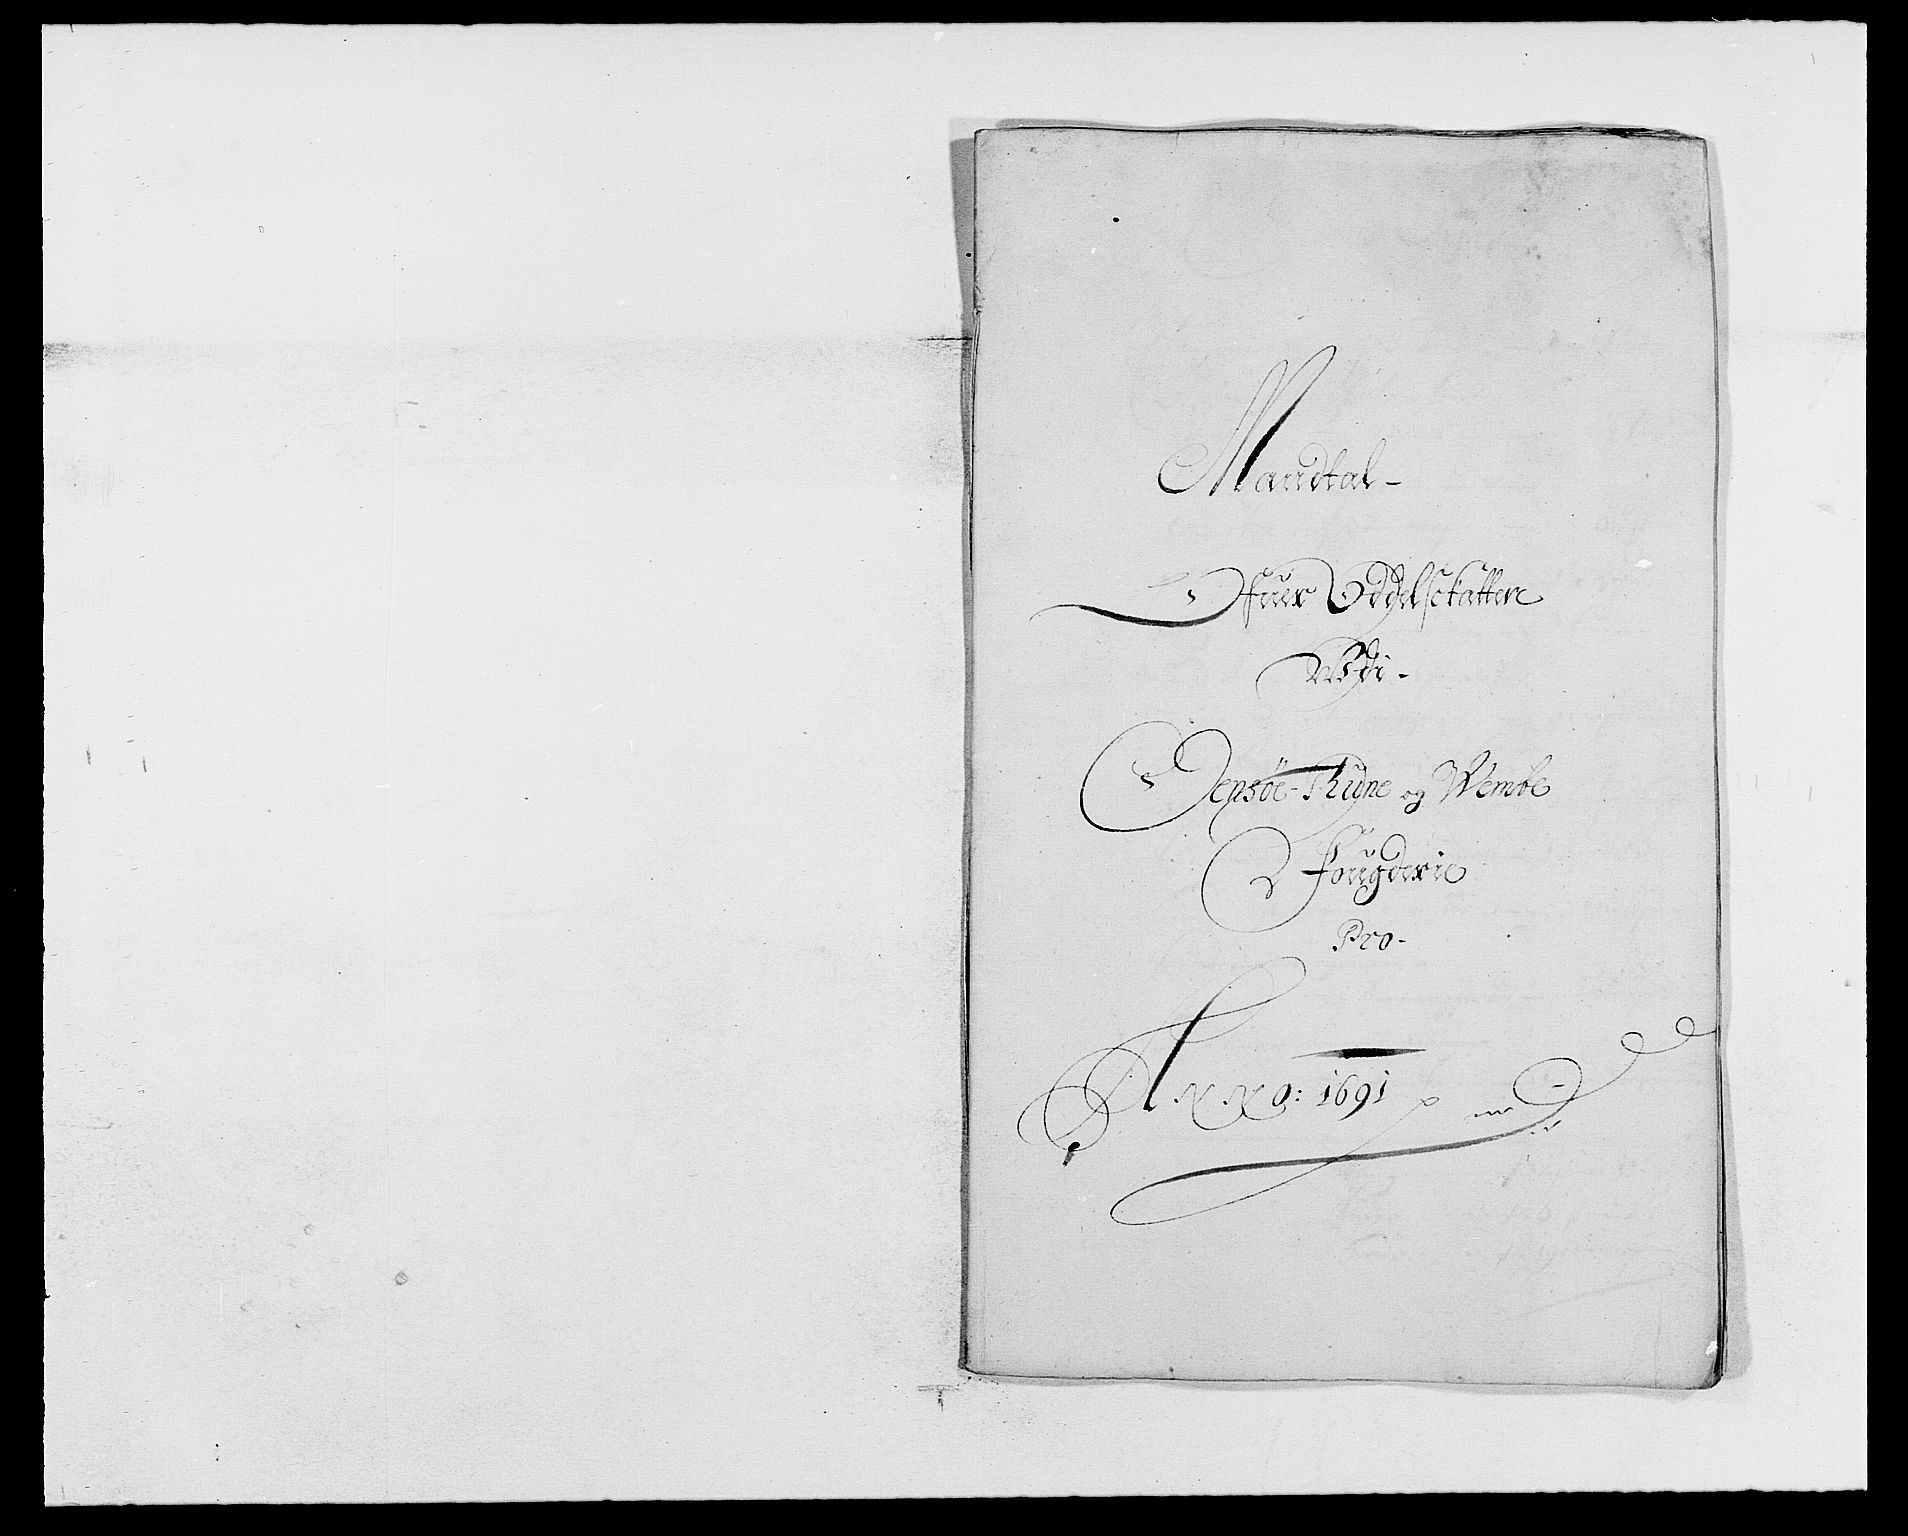 Mandtal-
Ofuer Oddelsckatten
Udi-
Jensöe- Thune og Wembe
Fougderie
Pro-
ANNO: 1691